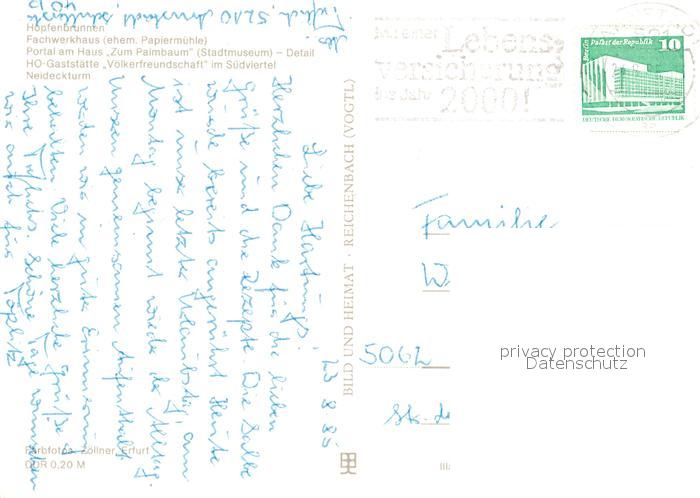 Hopfenbrunnen
Fachwerkhaus (ehem. Papiermühle)
Portal am Haus „Zum Palmbaum" (Stadtmuseum) – Detail
HO-Gaststätte „Völkerfreundschaft" im Südviertel
Neideckturm
Farbfotos: Zöllner, Erfurt
DDR 0,20 M
BILD UND HEIMAT · REICHENBACH (VOGTL)
Lebens-
versicherung
ins Jahr
2000!
Berlin, Palast der Republik
10
DEUTSCHE DEMOKRATISCHE REPUBLIK
23 8 85
Liebe Hartungs!
Herzlichen Dank für die lieben
Grüße und die Rezepte. Die Salbe
wurde bereits angerührt. Heute
ist unser letzter Urlaubstag, am
Montag beginnt wieder der Alltag.
Unseren gemeinsamen Aufenthalt
werden wir in guter Erinnerung
behalten. Viele herzliche Grüße
Ihre Schöne Tage wünschen
wir auch für
5210 Arnstadt
Familie
W
5062
privacy protection
Datenschutz